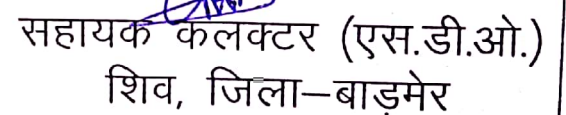 सहायक कलक्टर (एस.डी.ओ.)
शिव, जिला–बाड़मेर